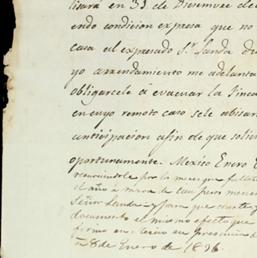 lizará en 31 de Diciembre de
endo condicion expresa que no
casa el expresado Sr. Landa du
yo arrendamiento me adelanta
obligarcele á evacuar la finca
en cuyo remoto caso se le abisar
anticipacion afin de que solici
oportunamente. Mexico Enero
por la mesa que falta
el año
Señor Landa y para que conste y
documento el mismo efecto que
firmo en
28 de Enero de 1896